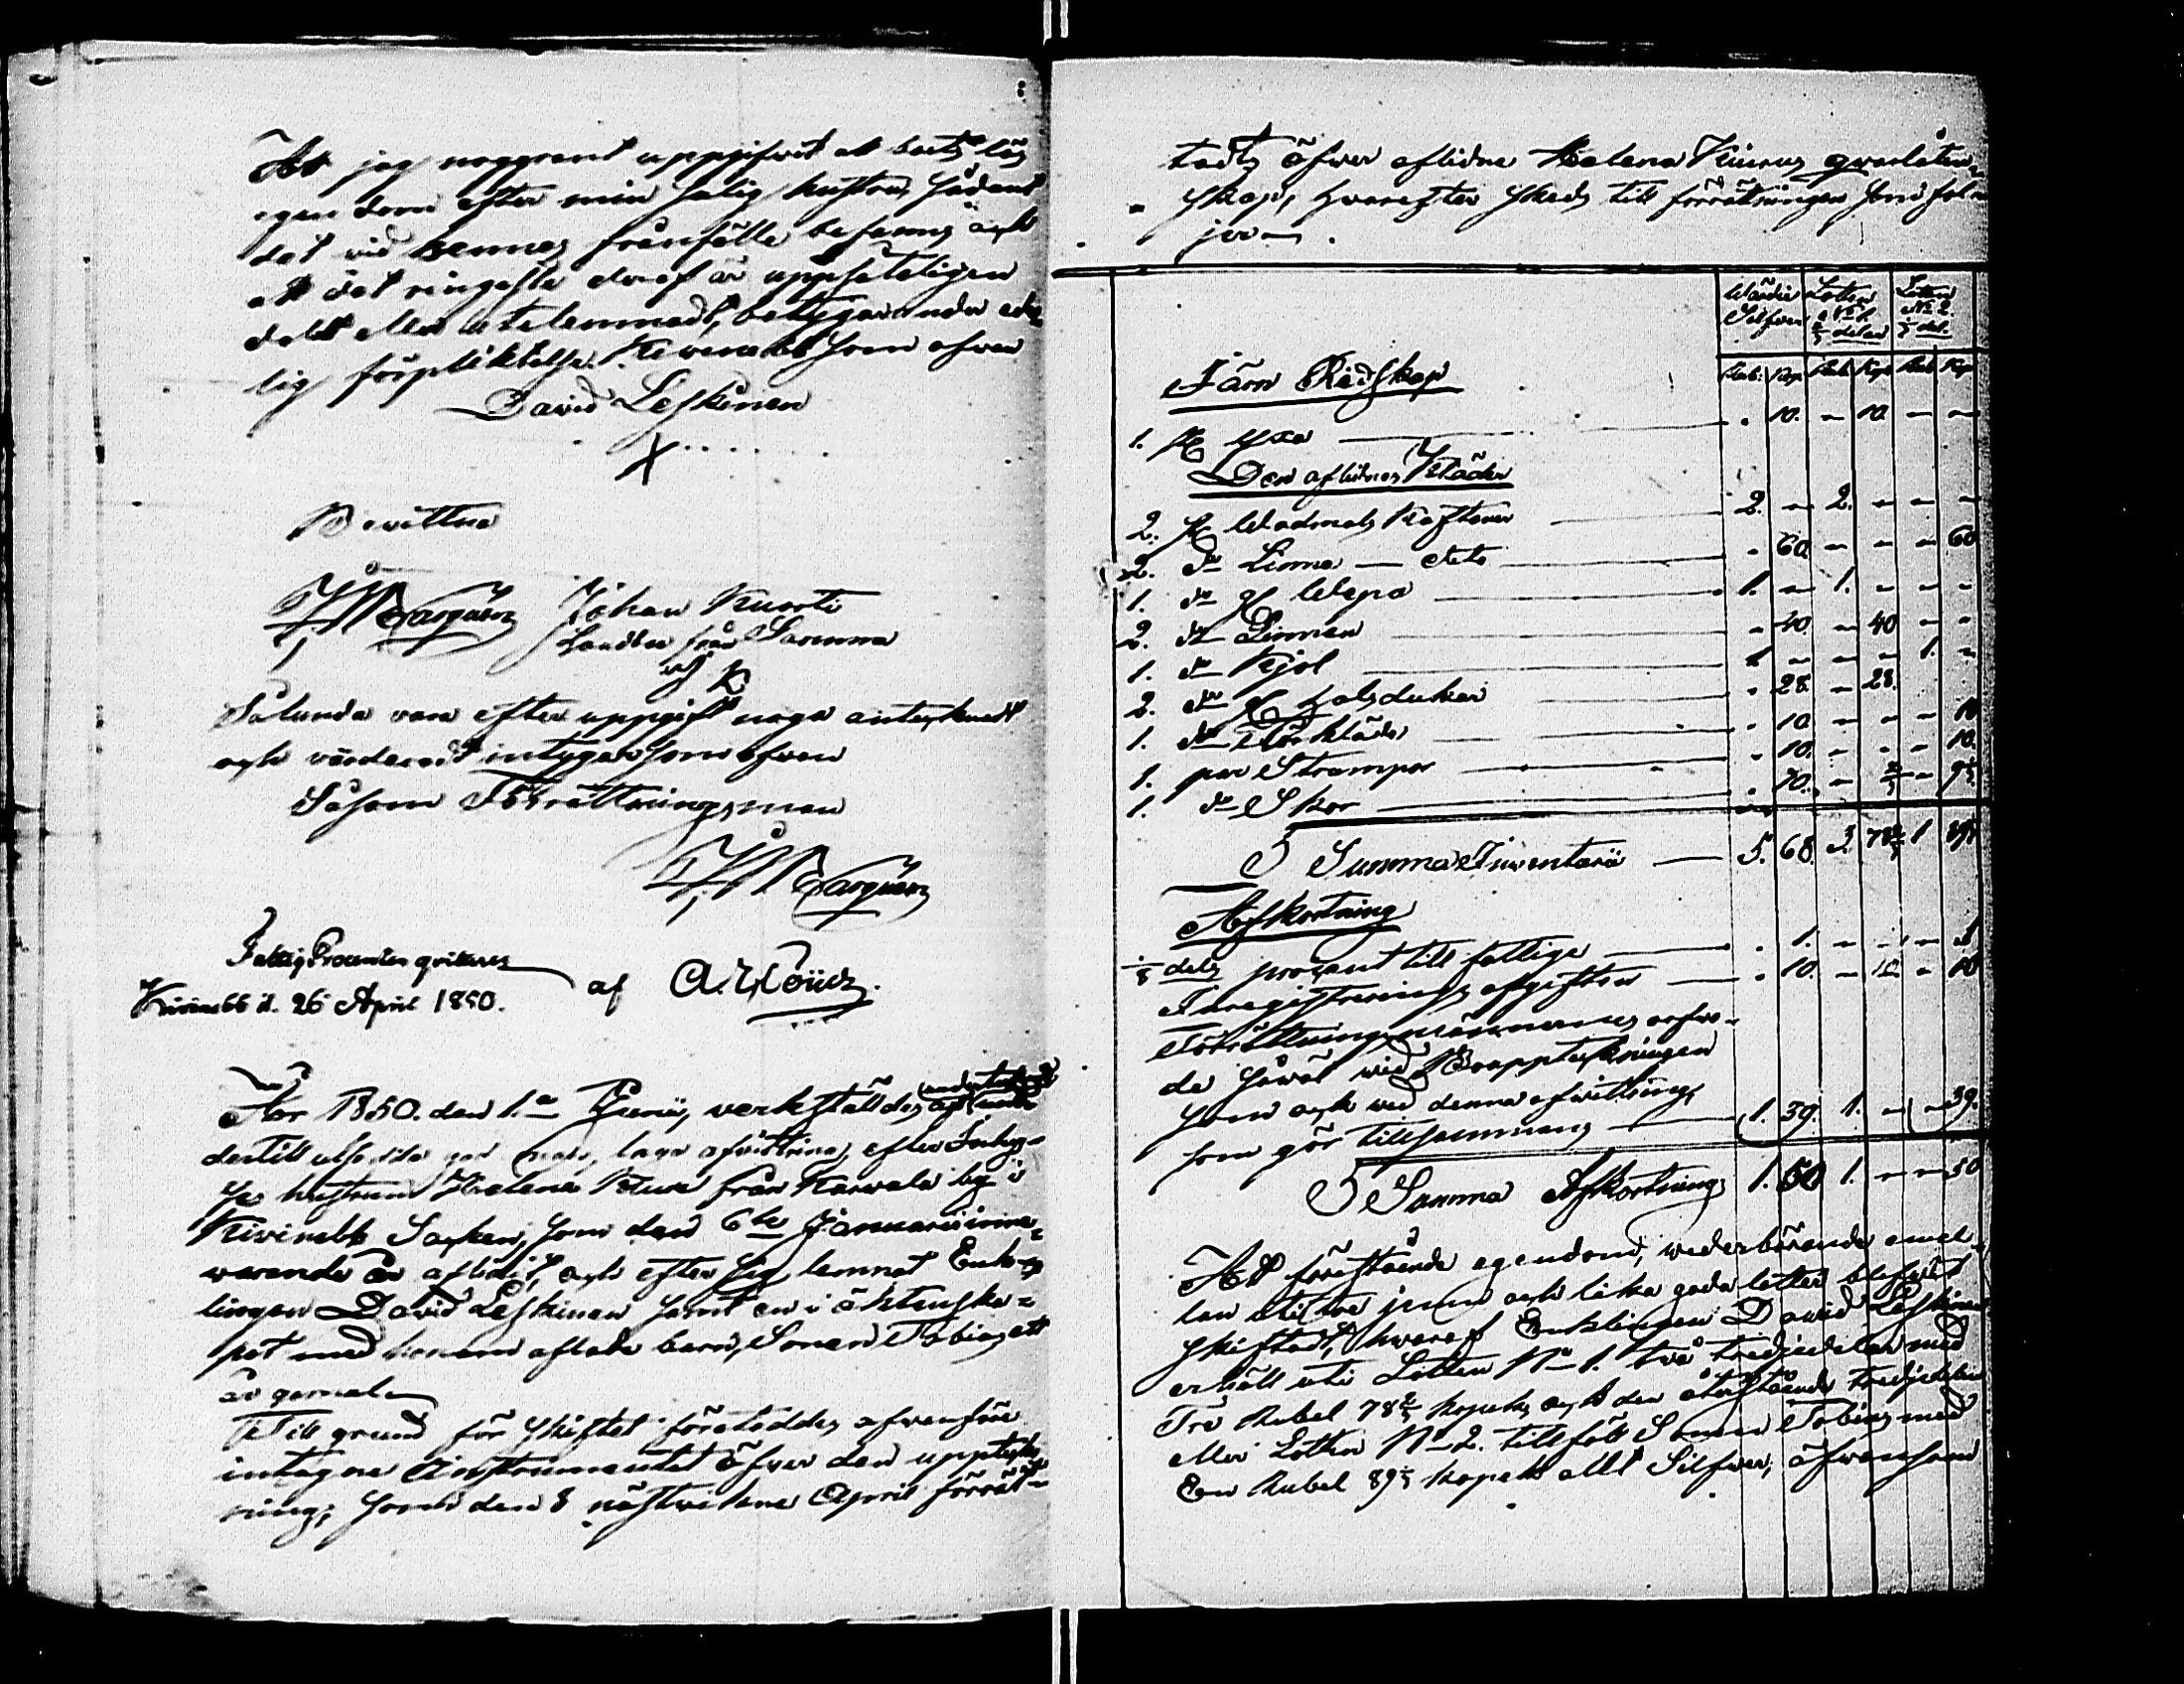 Att jag noggrant uppgifwit all bort lös
egendom efter min salig hustru sådant
det vid hennes frånfälle befanns och
att det ringeste deraf är uppsåteligen
doldt eller utelemnadt, betygar under ede-
lig förpliktelse. Kivinebb som ofwan
David Leskinen
X
Bevittna
Johan Kuorti
Landbo från Sarmma
Sålunda vara efter uppgift noga antecknadt
och värderadt intygar som ofwan
Såsom Förrättningsman
Fattig Procenten qvitteras
Kivinebb d. 26 April 1850. af
År 1850. den 1.a Junii, verkställdes
dertill laga afvittring efter Inhy-
ses hustrun Helena Kiuru från Karwala by i
Kivinebb Socken, som den 6te Januarii inne-
warande år aflidit, och efter sig lemnat Enk-
lingen David Leskinen samt en i äktenska-
pet med honom aflade barn, Sonen Tobias ett
år gamal
Till grund för skiftet företeddes ofwanföre
intagne Instrumentet öfver den uppteck-
ning, som den 8 nästvikne April förrät-
tats öfwer aflidne Helena Kiurus qwarlåten-
skap, hvarefter skeds till förrättningen som föl-
jer
Wärde Silfwer | Lotten No 1. 2/3 delar | Lotten No 2. 1/3 del.
Rub. Kop. Rub. Kop. Rub. Kop.
Järn Redskap
1. st yxa . 10. – 10. – –
Den aflidnes Kläder
2. st Wadmals Kaftaner 2. – 2. – – –
2. do Linne dito . 60. – – – 60
1. do st Wepa 1. – 1. – – –
2. do Linnen – 40. – 40 – –
1. do Kjol 1 – – – 1. –
2. do st halsdukar . 28. – 28.
1. do Förkläde . 10. – – – 10
1. par Strumpor . 10. – – – 10.
1. do Skor . 10. – 2/3 – 9 1/3
Summa Inventarii 5. 68. 3. 78 2/3 1 89 1/3
Afkortning
1/8 dels procent till fattige . 1. – – – 1
Inregistrerings afgiften . 10. – – – 10
Förrättningsmännernes arfwo-
de såväl wid Bouppteckningen
som och wid denna afwittring,
som gör tillsammans 1. 39. 1. – – 39.
Summa Afkortning 1. 50 1. – – 50
Att förestående egendom, wederbörande emel-
lan uti två jemn och lika goda lotter blefwit
skiftadt, hwaraf Enklingen David Leskinen
erhöll uti Lotten No 1. två tredjedelar med
Tre Rubel 78 2/3 kopek, och den återstående tredjedelen
eller Lotten No 2. tillföll Sonen Tobias med
En Rubel 89 1/3 kopek allt Silfwer, äfwensom